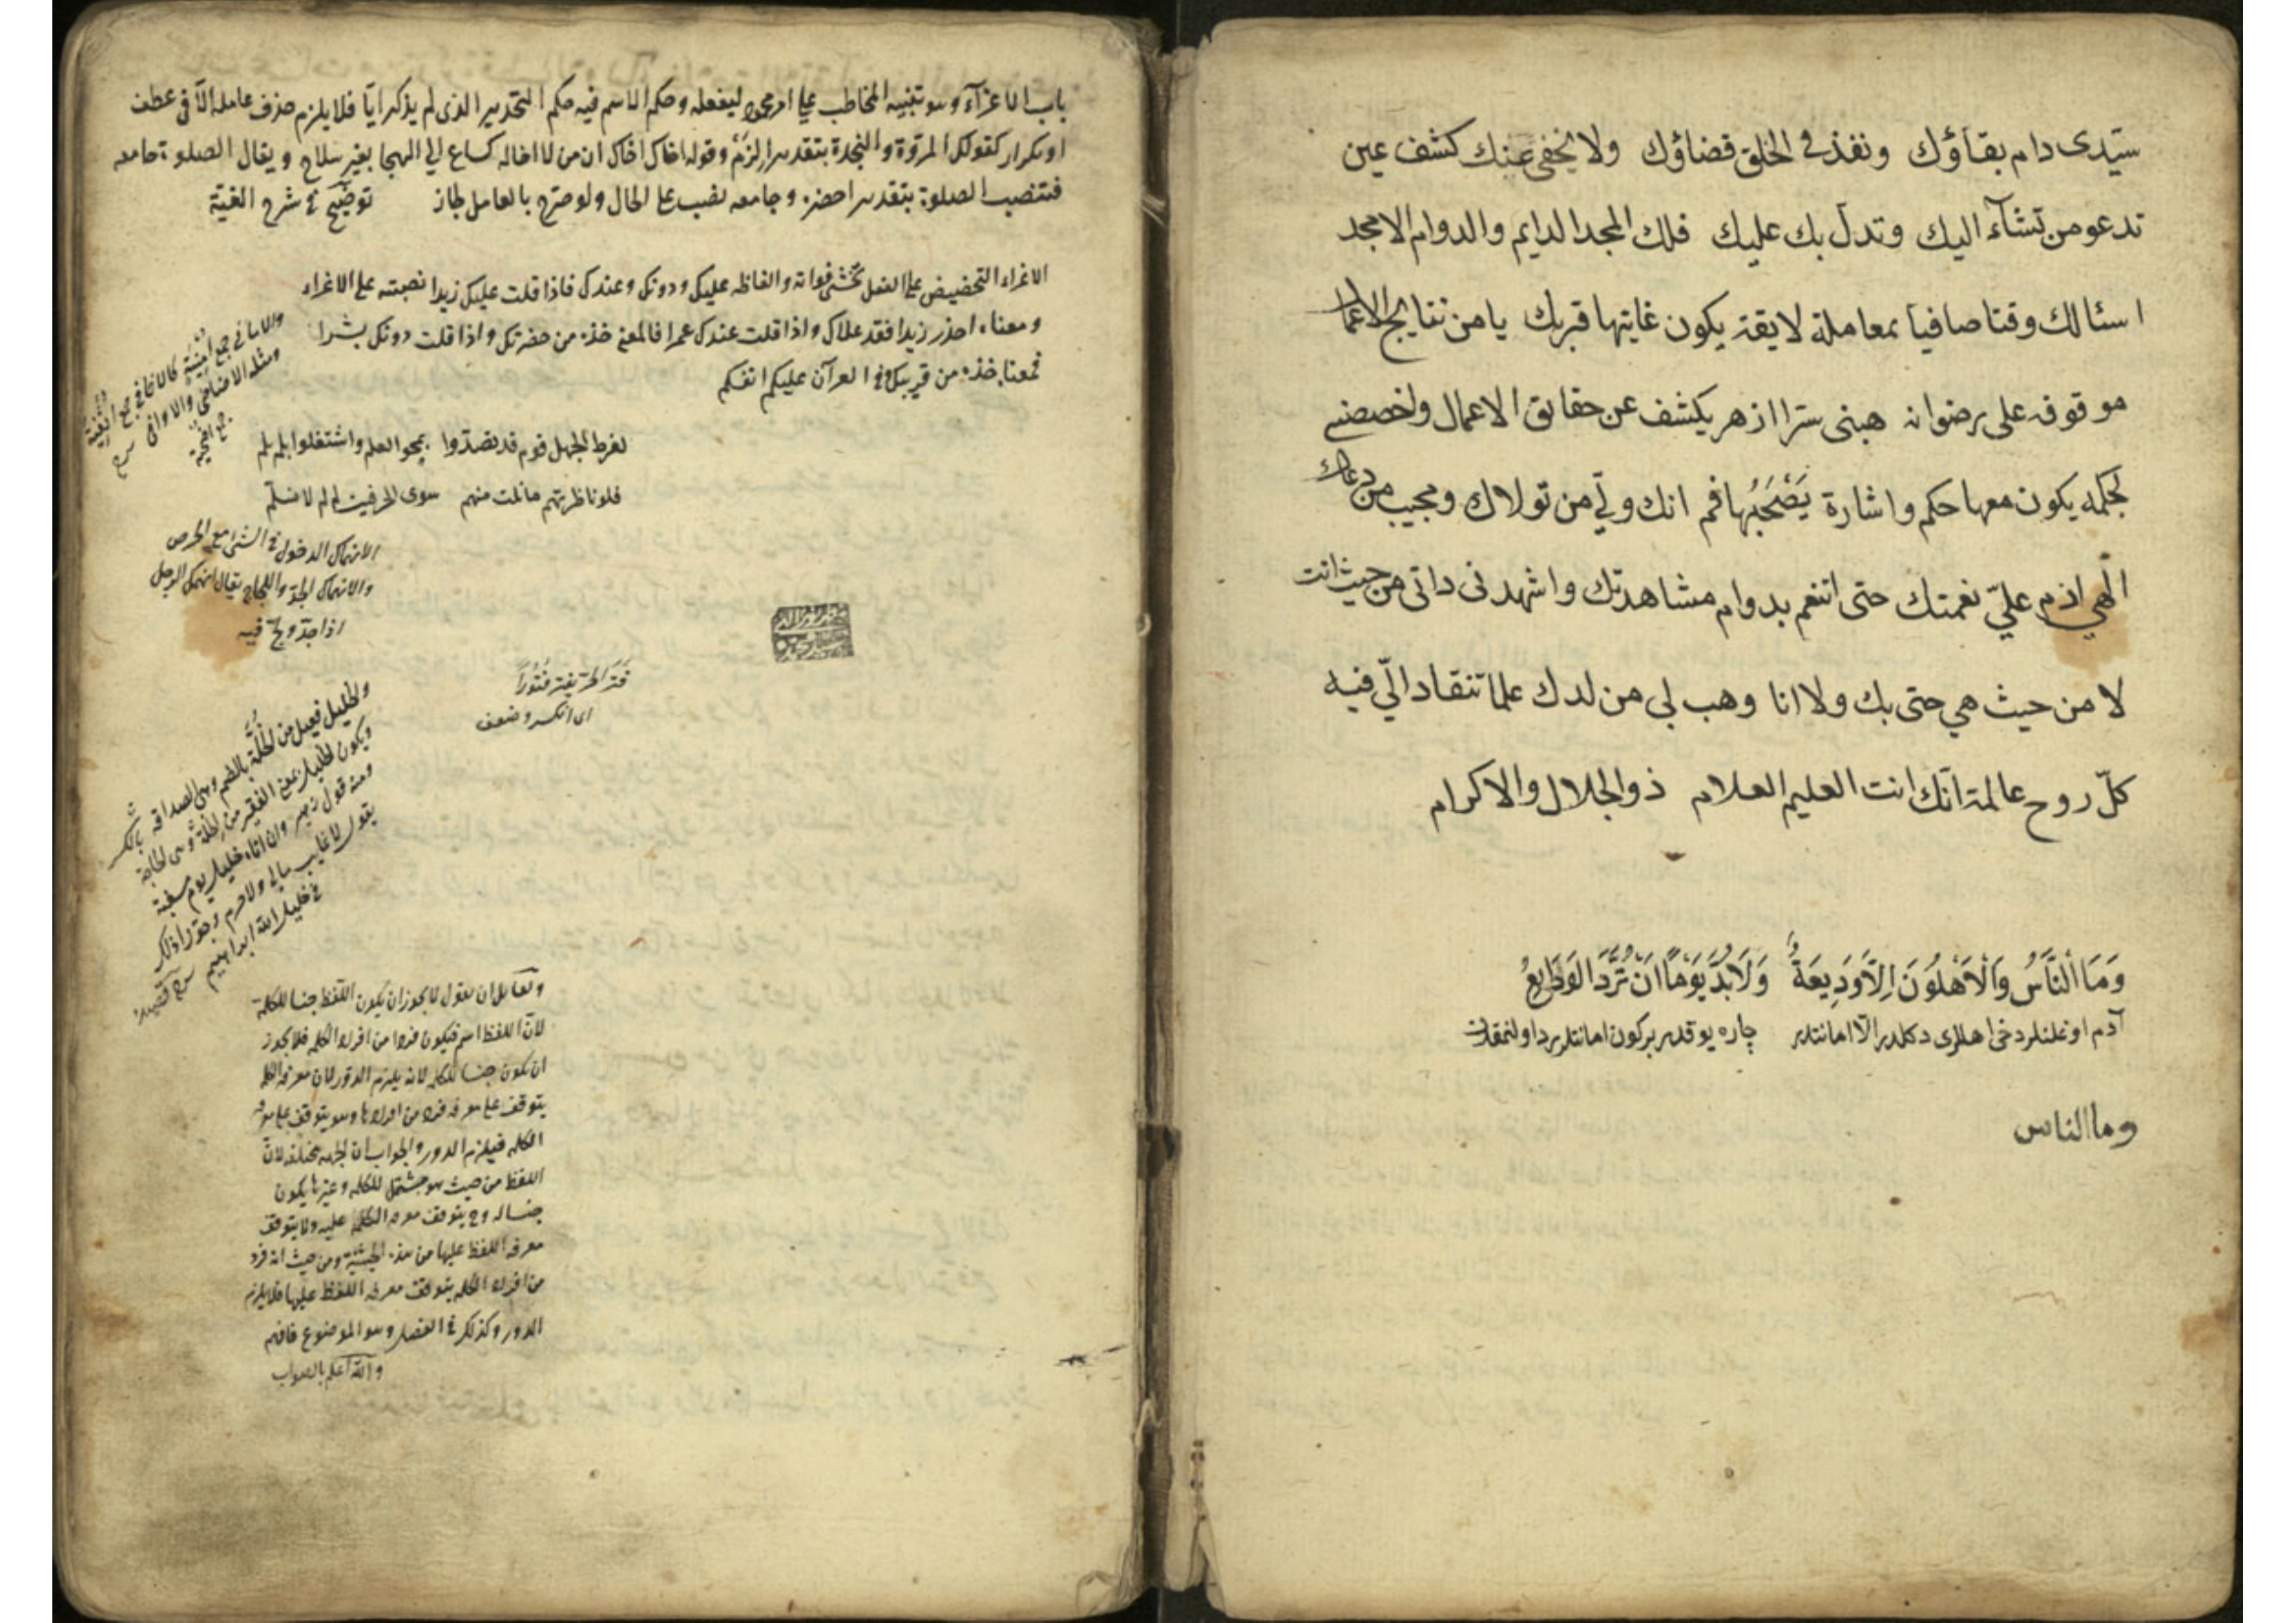 سيّدى دام بقاؤك ونفذ فى الخلق قضاؤك ولا يخفى عنك كشف عين
تدعو من تشآء اليك وتدل بك عليك فلك المجد الدايم والدوام الامجد
اسئالك وقتا صافيا بمعاملة لايقة يكون غايتها قربك يا من نتايج الاعمال
موقوفه على رضوانه هبنى سرّا ازهر يكشف عن حقايق الاعمال واخصصنى
بحكمه يكون معها حكم واشارة يصحبها فهم انك ولىّ من تولاك ومجيب من دعاك
الهي ادم علىّ نعمتك حتى اتنعم بدوام مشاهدتك واشهدنى ذاتى من حيث انت
لا من حيث هي حتى بك ولا انا وهب لى من لدك علما تنقاد الىّ فيه
كلّ روح عالمة انّك انت العليم العلام ذو الجلال والاكرام
وَمَا النَّاسُ وَالْاَهْلُونَ اِلَّا وَدِيعَةٌ وَلَابُدَّ يَوْمًا اَنْ تُرَدَّ الوَدَايِعُ
آدم اوغلنلرد خى اهللرى دكلدر الّا امانتلر چاره يوقدر بركون امانتلر رد اولنمقدن
وما الناس
باب الاغرآء وهو تنبيه المخاطب على امر محمود ليفعله وحكم الاسم فيه حكم التحذير الذى لم يذكر ايّا فلا يلزم حذف عامله الّا فى عطف
او تكرار كقولك المروّة والنجدة بتقدير الزم وقوله اخاك اخاك ان من لا اخاله كساع الى الهيجا بغير سلاح ويقال الصلوة جامعه
فتنصب الصلوة بتقدير احضر وجامعه نصب على الحال ولو صرّح بالعامل لجاز توضيح فى شرح الفية
الاغراء التحضيض على الفعل يخشى فواته والفاظه عليك ودونك وعندك فاذا قلت عليك زيدا نصبته على الاغراء
ومعناه احذر زيدا فقد علاك واذا قلت عندك عمرا فالمعنى خذه من حضرتك واذا قلت دونك بشرا
فمعناه خذه من قربك وفى القرآن عليكم انفسكم
لفرط الجهل قوم قد تصدّوا بمحو العلم واشتغلوا بلم لم
فلو ناظرتهم ما نلت منهم سوى الحرفين لم لم لا نسلّم
الانهماك الدخول فى الشئ مع الحرص
والانهماك الجدّ واللجاج يقال انهمك الرجل
اذا جدّ ولجّ فيه
فتر الحرّ يفتر فُتُورًا
اى انكسر وضعف
والخليل فعيل من الخلّة بالضم وهى الصداقة
ويكون الخليل بمعنى الفقير من الخلّة وهى الحاجة
ومنه قول زهير وان اتاه خليل يوم مسغبة
يقول لا غايب مالى ولا حرم وجوّزا ذلك
فى خليل الله ابراهيم
ولقايل ان يقول لا يجوز ان يكون اللفظ جنسا للكلمة
لانّ اللفظ اسم فيكون فردا من افراد الكلمه فلا يجوز
ان يكون جنسا للكلمه لانه يلزم الدور لان معرفة الكلمه
يتوقف على معرفه فرد من افرادها وهو يتوقف على معرفه
الكلمه فيلزم الدور والجواب ان الجهه مختلفه لانّ
اللفظ من حيث هو مشتمل للكلمه وغيرها يكون
جنسا له وح يتوقف معرفه الكلمه عليه ولا يتوقف
معرفه اللفظ عليها من هذه الحيثيّة ومن حيث انه فرد
من افراد الكلمه يتوقف معرفه اللفظ عليها فلا يلزم
الدور وكذلك فى الفصل وهو الموضوع فافهم
والله اعلم بالصواب